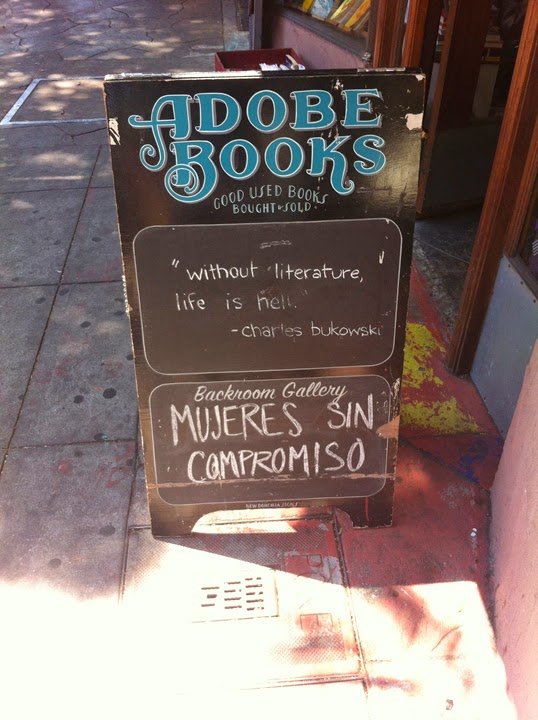 ADOBE
BOOKS
GOOD USED BOOKS
BOUGHT & SOLD
"without literature,
life is hell."
-charles bukowski
Backroom Gallery
MUJERES SIN
COMPROMISO